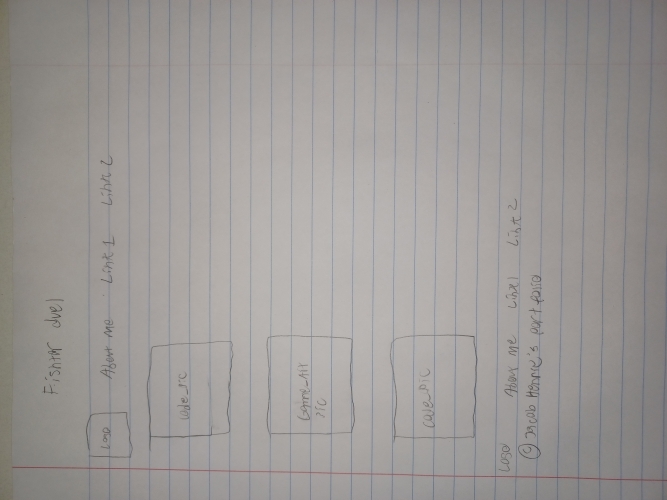 Fishtar duel
Logo About me Link 1 Link 2
code_pic
Game_Art
Pic
code_pic
Logo About me Link 1 Link 2
© Jacob Henrie's portfolio